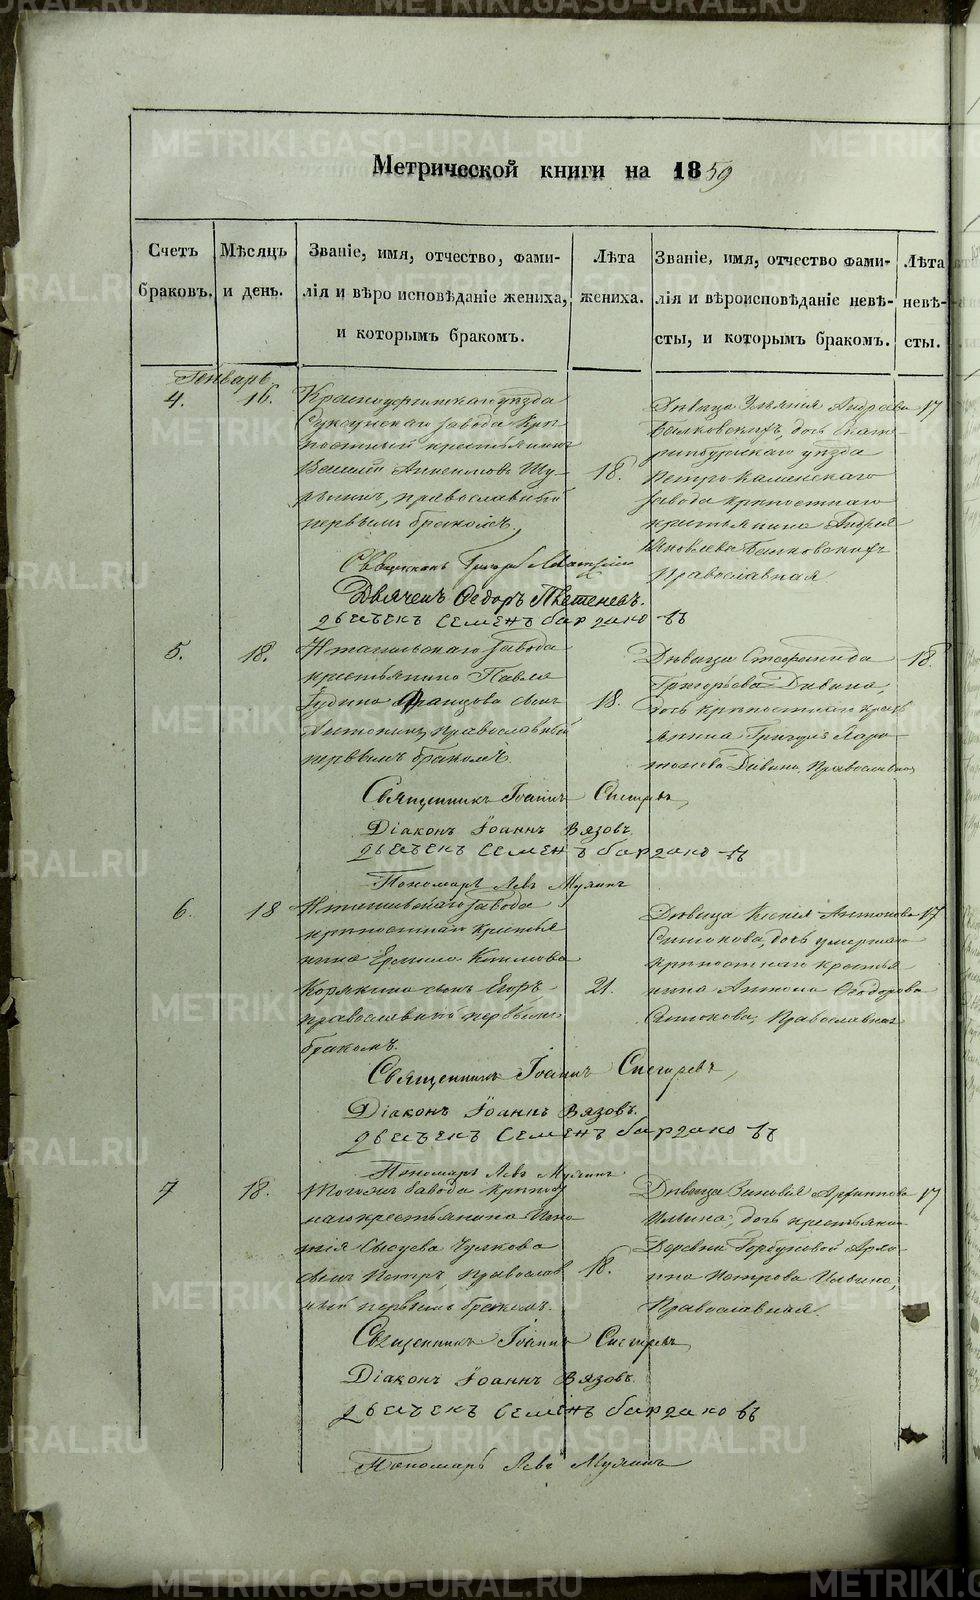 Метрической книги на 1859
Счетъ браковъ.
Мѣсяцъ и день.
Званіе, имя, отчество, фами-
лія и вѣро исповѣданіе жениха,
и которымъ бракомъ.
Лѣта жениха.
Званіе, имя, отчество фами-
лія и вѣроисповѣданіе невѣ-
сты, и которымъ бракомъ.
Лѣта невѣ-
сты.
Генварь
4.
16.
Красноуфимскаго уѣзда
Суксунскаго завода Крѣ
постный крестьянинъ
православный
первымъ бракомъ.
18.
Дѣвица Андреева
дочь Екате
ринбургскаго уѣзда
Петро Каменскаго
завода крѣпостнаго
крестьянина Андрея
Яковлева
Православная
17
Священникъ Григорій
Дьячекъ Ѳедоръ
дьячекъ Семенъ бардаковъ
5.
18.
Нтагильскаго завода
крестьянина Павла
сынъ
Православный
первымъ бракомъ.
18.
Дѣвица Стефанида
Григорьева Дивина,
дочь крѣпостнаго кресть
янина Григорья
Дивина, Православная
18.
Священникъ Іоаннъ Снегиревъ,
Діаконъ Іоаннъ Вязовъ.
дьячекъ Семенъ бардаковъ
Пономарь Левъ
6.
18
Нтагильскаго завода
крѣпостнаго Крестья
нина
Корякина сынъ Егоръ
православный первымъ
бракомъ.
21.
Дѣвица Ксенія Антонова
дочь умершаго
крѣпостнаго крестья
нина Антона Ѳеодорова
Православная
17
Священникъ Іоаннъ Снегиревъ,
Діаконъ Іоаннъ Вязовъ.
дьячекъ Семенъ бардаковъ
Пономарь Левъ
7
18.
завода
наго крестьянина Игна
тія Сысуева Чулкова
сынъ Петръ Православ
ный первымъ бракомъ.
18.
Дѣвица Зиновія Архиппова
Ильина, дочь крестьянина
Деревни Горбуновой Архи
ппа Петрова Ильина,
Православная
17
Священникъ Іоаннъ Снегиревъ
Діаконъ Іоаннъ Вязовъ.
дьячекъ Семенъ бардаковъ
Пономарь Левъ
METRIKI.GASO-URAL.RU